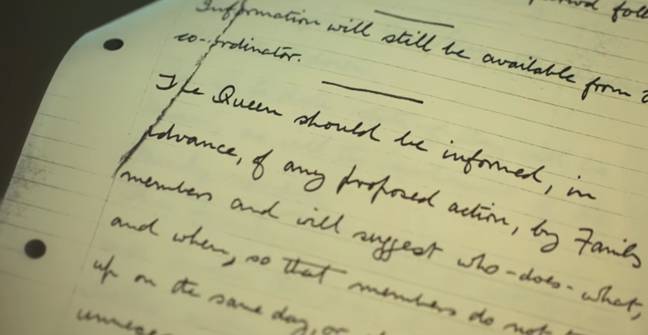 Information will still be available from
co-ordinator.
The Queen should be informed, in
advance, of any proposed action, by Family
members and will suggest who-does-what,
and when, so that members do not
up on the same day, or